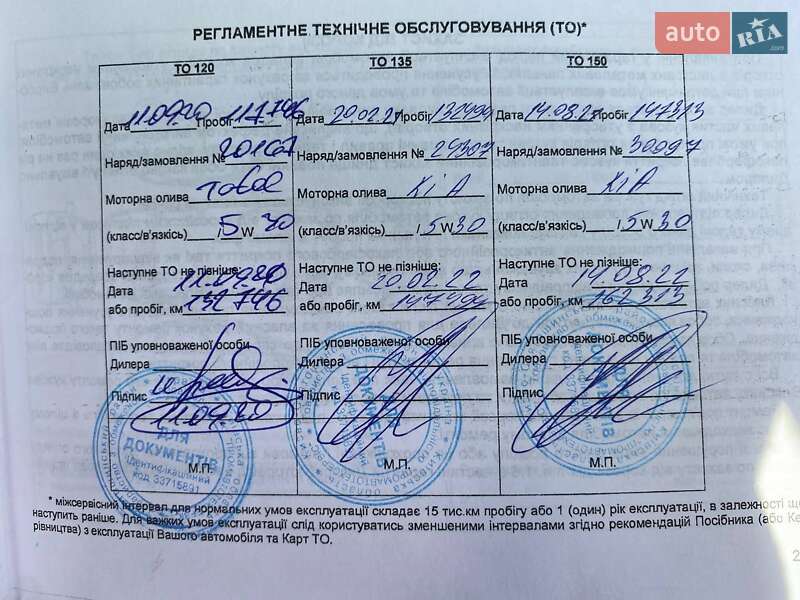 auto RIA .com
РЕГЛАМЕНТНЕ ТЕХНІЧНЕ ОБСЛУГОВУВАННЯ (ТО)*
ТО 120 ТО 135 ТО 150
Дата 11.09.20 Пробіг 117.746 Дата 20.02.21 Пробіг 132494 Дата 14.08.21 Пробіг 147313
Наряд/замовлення № 20167 Наряд/замовлення № 24307 Наряд/замовлення № 30097
Моторна олива Total Моторна олива KiA Моторна олива KiA
(класс/в'язкість) / 5 W 30 (класс/в'язкість) / 5 W 30 (класс/в'язкість) / 5 W 30
Наступне ТО не пізніше: Наступне ТО не пізніше: Наступне ТО не пізніше:
Дата Дата 20.02.22 Дата 14.08.22
або пробіг, км 132746 або пробіг, км 147494 або пробіг, км 162313
ПІБ уповноваженої особи ПІБ уповноваженої особи ПІБ уповноваженої особи
Дилера Дилера Дилера
Підпис Підпис Підпис
11.09.20
ДЛЯ ДОКУМЕНТІВ
Ідентифікаційний код 33715891
М.П. М.П. М.П.
* міжсервісний інтервал для нормальних умов експлуатації складає 15 тис.км пробігу або 1 (один) рік експлуатації, в залежності що
наступить раніше. Для важких умов експлуатації слід користуватись зменшеними інтервалами згідно рекомендацій Посібника (або Ке
рівництва) з експлуатації Вашого автомобіля та Карт ТО.